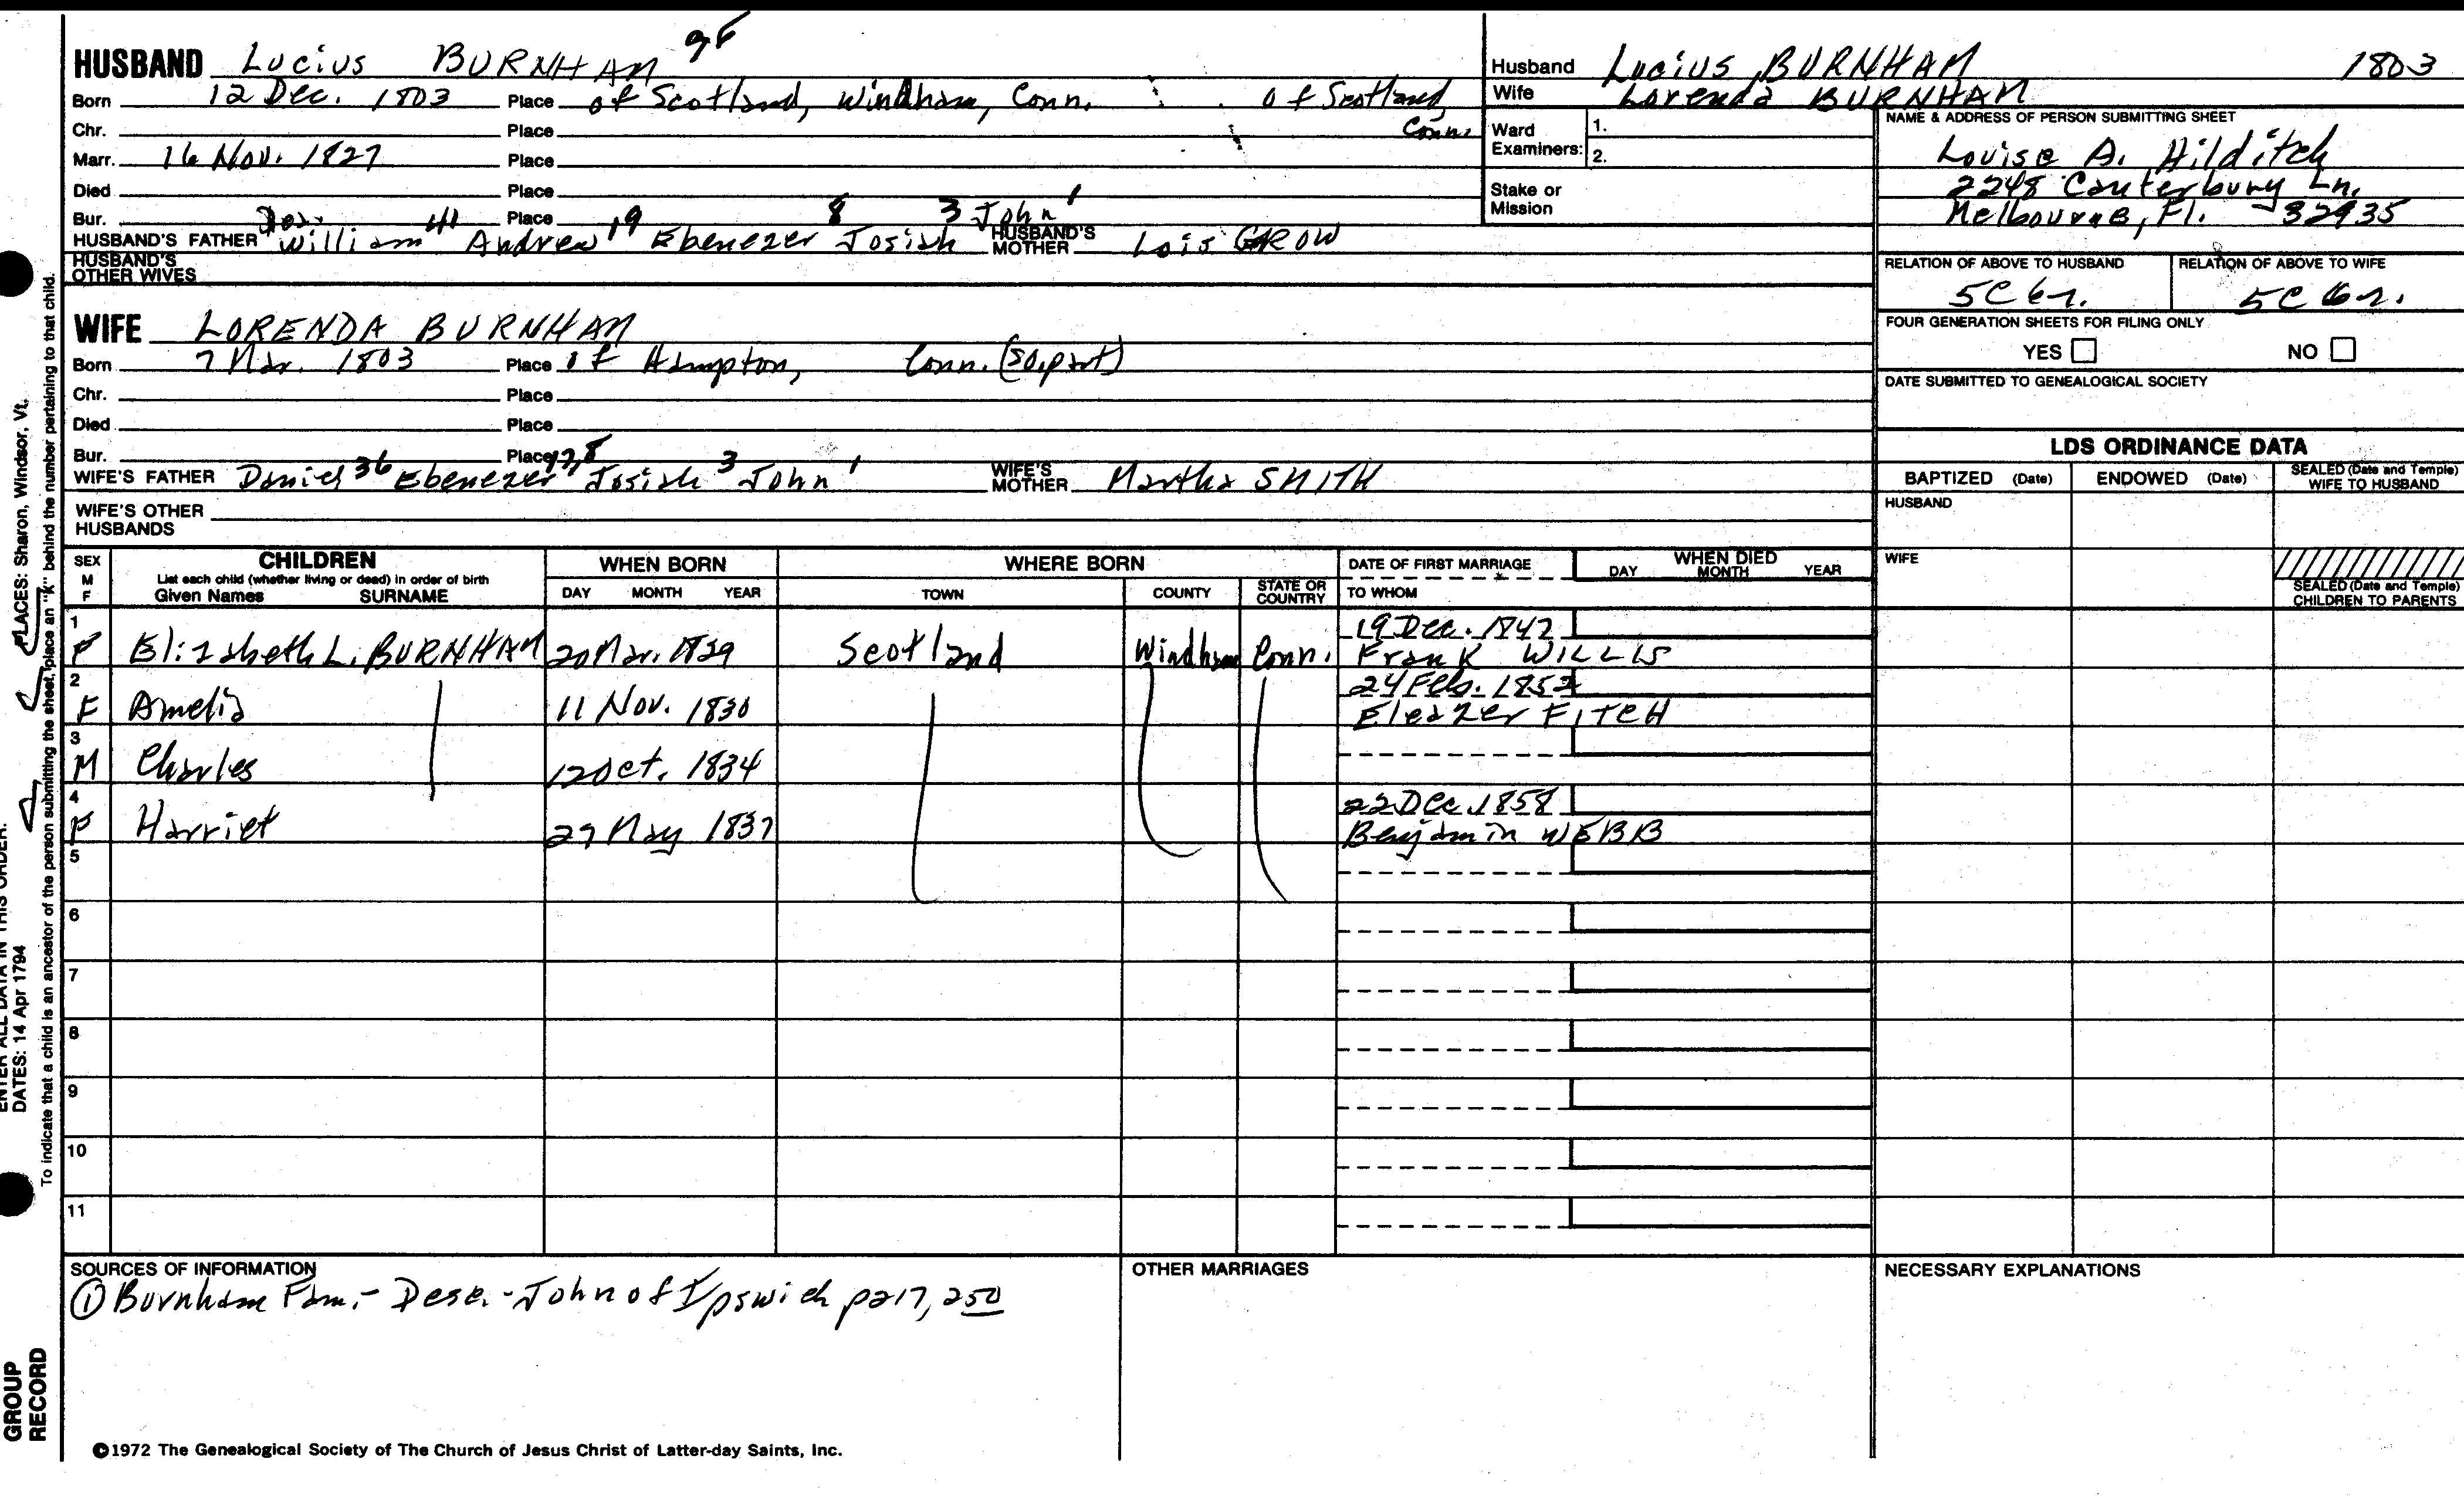 98
HUSBAND Lucius BURNHAM
Born 12 Dec. 1803 Place of Scotland, Windham, Conn. of Scotland,
Conn.
Chr. Place
Marr. 16 Nov. 1827 Place
Died Place
Bur. Place
HUSBAND'S FATHER Dea. William 41 Andrew 19 Ebenezer 8 Josiah 3 John 1 HUSBAND'S MOTHER Lois GROW
HUSBAND'S OTHER WIVES
WIFE LORENDA BURNHAM
Born 7 Mar. 1803 Place of Hampton, Conn. (so. part)
Chr. Place
Died Place
Bur. Place
WIFE'S FATHER Daniel 36 Ebenezer 8 Josiah 3 John 1 WIFE'S MOTHER Martha SMITH
WIFE'S OTHER HUSBANDS
Husband Lucius BURNHAM 1803
Wife Lorenda BURNHAM
Ward Examiners: 1.
2.
Stake or Mission
NAME & ADDRESS OF PERSON SUBMITTING SHEET
Louise A. Hilditch
2248 Canterbury Ln.
Melbourne, Fl. 32935
RELATION OF ABOVE TO HUSBAND RELATION OF ABOVE TO WIFE
5C 6r. 5C 6r.
FOUR GENERATION SHEETS FOR FILING ONLY
YES NO
DATE SUBMITTED TO GENEALOGICAL SOCIETY
LDS ORDINANCE DATA
BAPTIZED (Date) ENDOWED (Date) SEALED (Date and Temple) WIFE TO HUSBAND
HUSBAND
WIFE
SEALED (Date and Temple) CHILDREN TO PARENTS
SEX M F CHILDREN WHEN BORN WHERE BORN DATE OF FIRST MARRIAGE WHEN DIED
List each child (whether living or dead) in order of birth
Given Names SURNAME DAY MONTH YEAR TOWN COUNTY STATE OR COUNTRY TO WHOM DAY MONTH YEAR
1 19 Dec. 1847
F Elizabeth L. BURNHAM 20 Mar. 1829 Scotland Windham Conn. Frank WILLIS
2 24 Feb. 1852
F Amelia 11 Nov. 1830 Eleazer FITCH
3
M Charles 12 Oct. 1834
4 22 Dec. 1858
F Harriet 27 May 1837 Benjamin WEBB
5
6
7
8
9
10
11
SOURCES OF INFORMATION
① Burnham Fam. - Desc. - John of Ipswich p217, 250
OTHER MARRIAGES
NECESSARY EXPLANATIONS
©1972 The Genealogical Society of The Church of Jesus Christ of Latter-day Saints, Inc.
PLACES: Sharon, Windsor, Vt.
ENTER ALL DATA IN THIS ORDER:
DATES: 14 Apr 1794
To indicate that a child is an ancestor of the person submitting the sheet, place an "X" behind the number pertaining to that child.
GROUP
RECORD